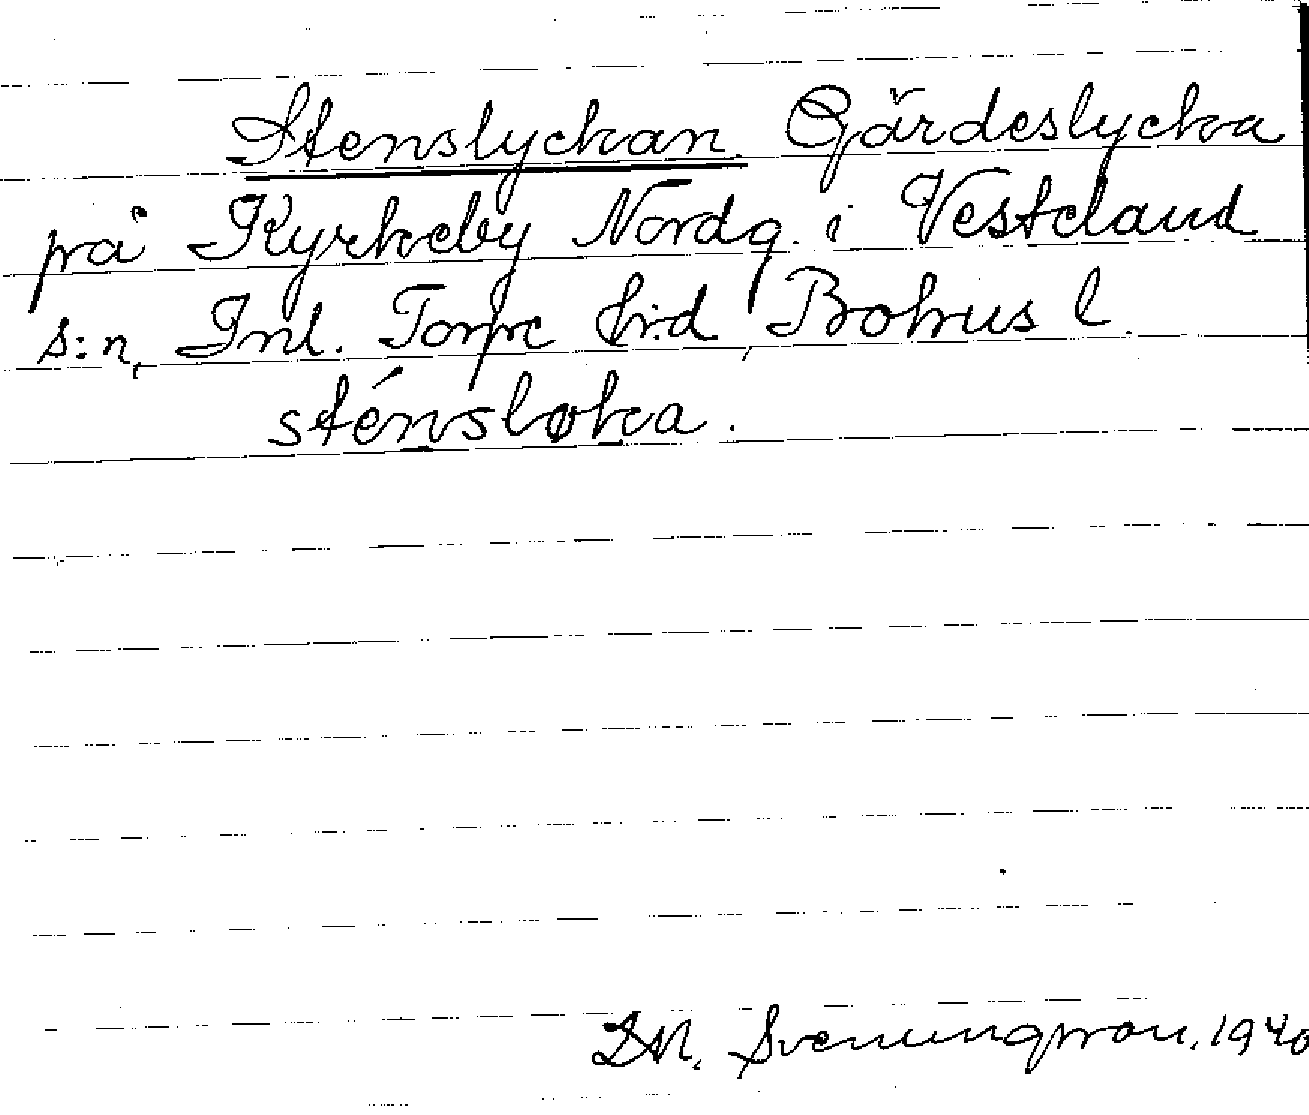 Stenslyckan Gärdeslycka
på Kyrkeby Nordg. i Vesteland
s:n, Inl. Torpe hrd, Bohus l.
sténsløka.
D.M. Svenungsson, 1940